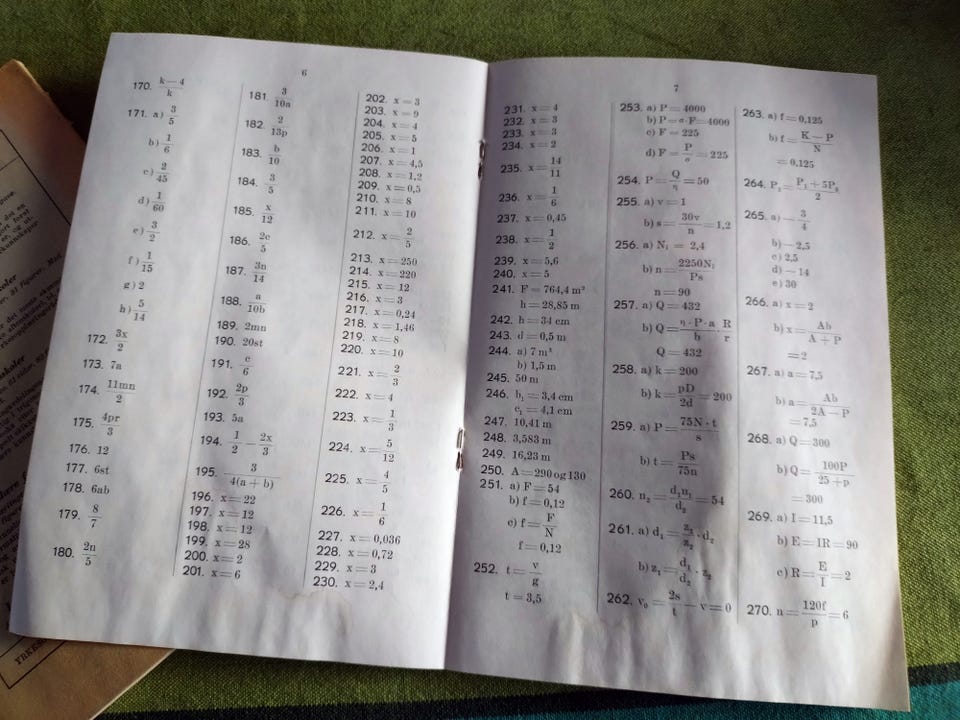 6
170. k — 4 / k
171. a) 3/5
b) 1/6
c) 2/45
d) 1/60
e) 3/2
f) 1/15
g) 2
h) 5/14
172. 3x/2
173. 7a
174. 11mn/2
175. 4pr/3
176. 12
177. 6st
178. 6ab
179. 8/7
180. 2n/5
181. 3/10a
182. 2/13p
183. b/10
184. 3/5
185. x/12
186. 2c/5
187. 3n/14
188. a/10b
189. 2mn
190. 20st
191. c/6
192. 2p/3
193. 5a
194. 1/2 — 2x/3
195. 3/4(a + b)
196. x = 22
197. x = 12
198. x = 12
199. x = 28
200. x = 2
201. x = 6
202. x = 3
203. x = 9
204. x = 4
205. x = 5
206. x = 1
207. x = 4,5
208. x = 1,2
209. x = 0,5
210. x = 8
211. x = 10
212. x = 2/5
213. x = 250
214. x = 220
215. x = 12
216. x = 3
217. x = 0,24
218. x = 1,46
219. x = 8
220. x = 10
221. x = 2/3
222. x = 4
223. x = 1/3
224. x = 5/12
225. x = 4/5
226. x = 1/6
227. x = 0,036
228. x = 0,72
229. x = 3
230. x = 2,4
7
231. x = 4
232. x = 3
233. x = 3
234. x = 2
235. x = 14/11
236. x = 1/6
237. x = 0,45
238. x = 1/2
239. x = 5,6
240. x = 5
241. F = 764,4 m²
h = 28,85 m
242. h = 34 cm
243. d = 0,5 m
244. a) 7 m³
b) 1,5 m
245. 50 m
246. b₁ = 3,4 cm
c₁ = 4,1 cm
247. 10,41 m
248. 3,583 m
249. 16,23 m
250. A = 290 og 130
251. a) F = 54
b) f = 0,12
c) f = F/N
f = 0,12
252. t = v/g
t = 3,5
253. a) P = 4000
b) P = σ·F = 4000
c) F = 225
d) F = P/σ = 225
254. P = Q/η = 50
255. a) v = 1
b) s = 30v/n = 1,2
256. a) Nᵢ = 2,4
b) n = 2250Nᵢ/Ps
n = 90
257. a) Q = 432
b) Q = η · P · a/b · R/r
Q = 432
258. a) k = 200
b) k = pD/2d = 200
259. a) P = 75N · t/s
b) t = Ps/75n
260. n₂ = d₁n₁/d₂ = 54
261. a) d₁ = z₁/z₂ · d₂
b) z₁ = d₁/d₂ · z₂
262. v₀ = 2s/t — v = 0
263. a) f = 0,125
b) f = K — P/N
= 0,125
264. P₁ = P₁ + 5P₂/2
265. a) — 3/4
b) — 2,5
c) 2,5
d) — 14
e) 30
266. a) x = 2
b) x = Ab/A + P
= 2
267. a) a = 7,5
b) a = Ab/2A — P
= 7,5
268. a) Q = 300
b) Q = 100P/25 + p
= 300
269. a) I = 11,5
b) E = IR = 90
c) R = E/I = 2
270. n = 120f/p = 6